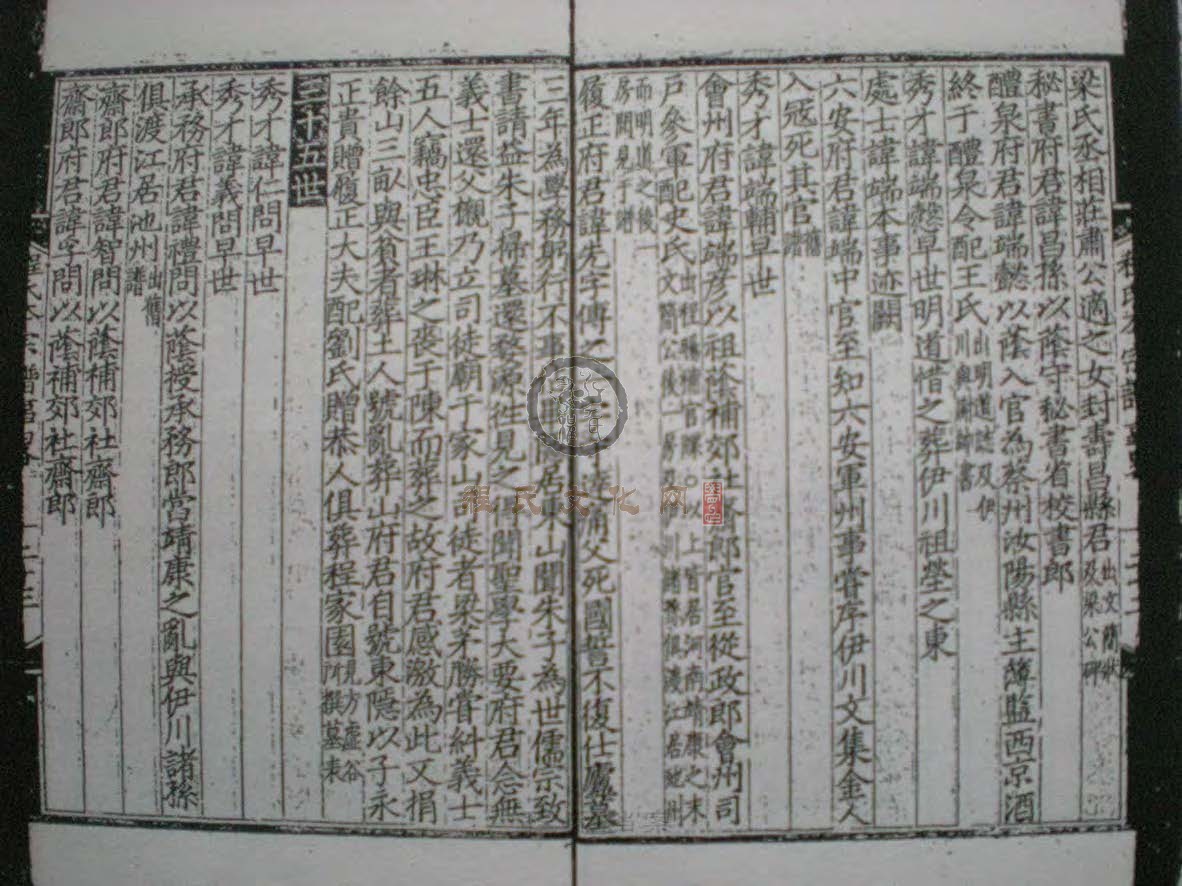 梁氏丞相莊肅公適之女封壽昌縣君出文簡狀及梁公碑
秘書府君諱昌孫以蔭守秘書省校書郎
醴泉府君諱端懿以蔭入官為蔡州汝陽縣主簿監西京酒
終于醴泉令配王氏出明道誌及伊川與謝師書
秀才諱端愨早世明道惜之葬伊川祖塋之東
處士諱端本事迹闕
六安府君諱端中官至知六安軍州事嘗序伊川文集金人
入冦死其官舊譜
秀才諱端輔早世
會州府君諱端彥以祖蔭補郊社齋郎官至從政郎會州司
戶參軍配史氏出程陽穆官以上皆居河南靖康之末文簡公後一房及伊川諸孫俱渡江居池州
而明道之後一房闕見于譜
履正府君諱先字傳之痛父死國誓不復仕廬墓
三年為學務躬行不事隱居東山聞朱子為世儒宗致
書請益朱子掃墓還婺源往見之得聞聖學大要府君念無
義士還父櫬乃立司徒廟于家山許從者梁茅勝嘗糾義士
五人竊忠臣王琳之喪于陳而葬之故府君感激為此又捐
餘山三畝與貧者葬土人號亂葬山府君自號東隱以子永
正貴贈履正大夫配劉氏贈恭人俱葬程家園見方虛谷所撰墓表
三十五世
秀才諱仁問早世
秀才諱義問早世
承務府君諱禮問以蔭授承務郎當靖康之亂與伊川諸孫
俱渡江居池州出舊譜
齋郎府君諱智問以蔭補郊社齋郎
齋郎府君諱孚問以蔭補郊社齋郎
程氏文化网